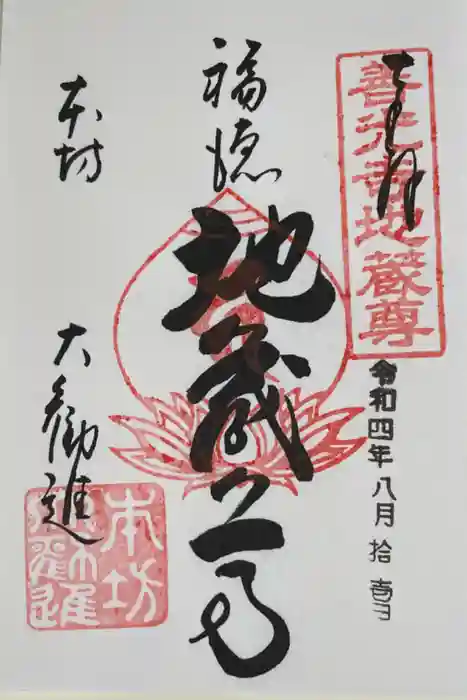 奉拝
善光寺地蔵尊
令和四年八月拾壱日
福徳
地蔵尊
本坊
大勧進
本坊
大勧進